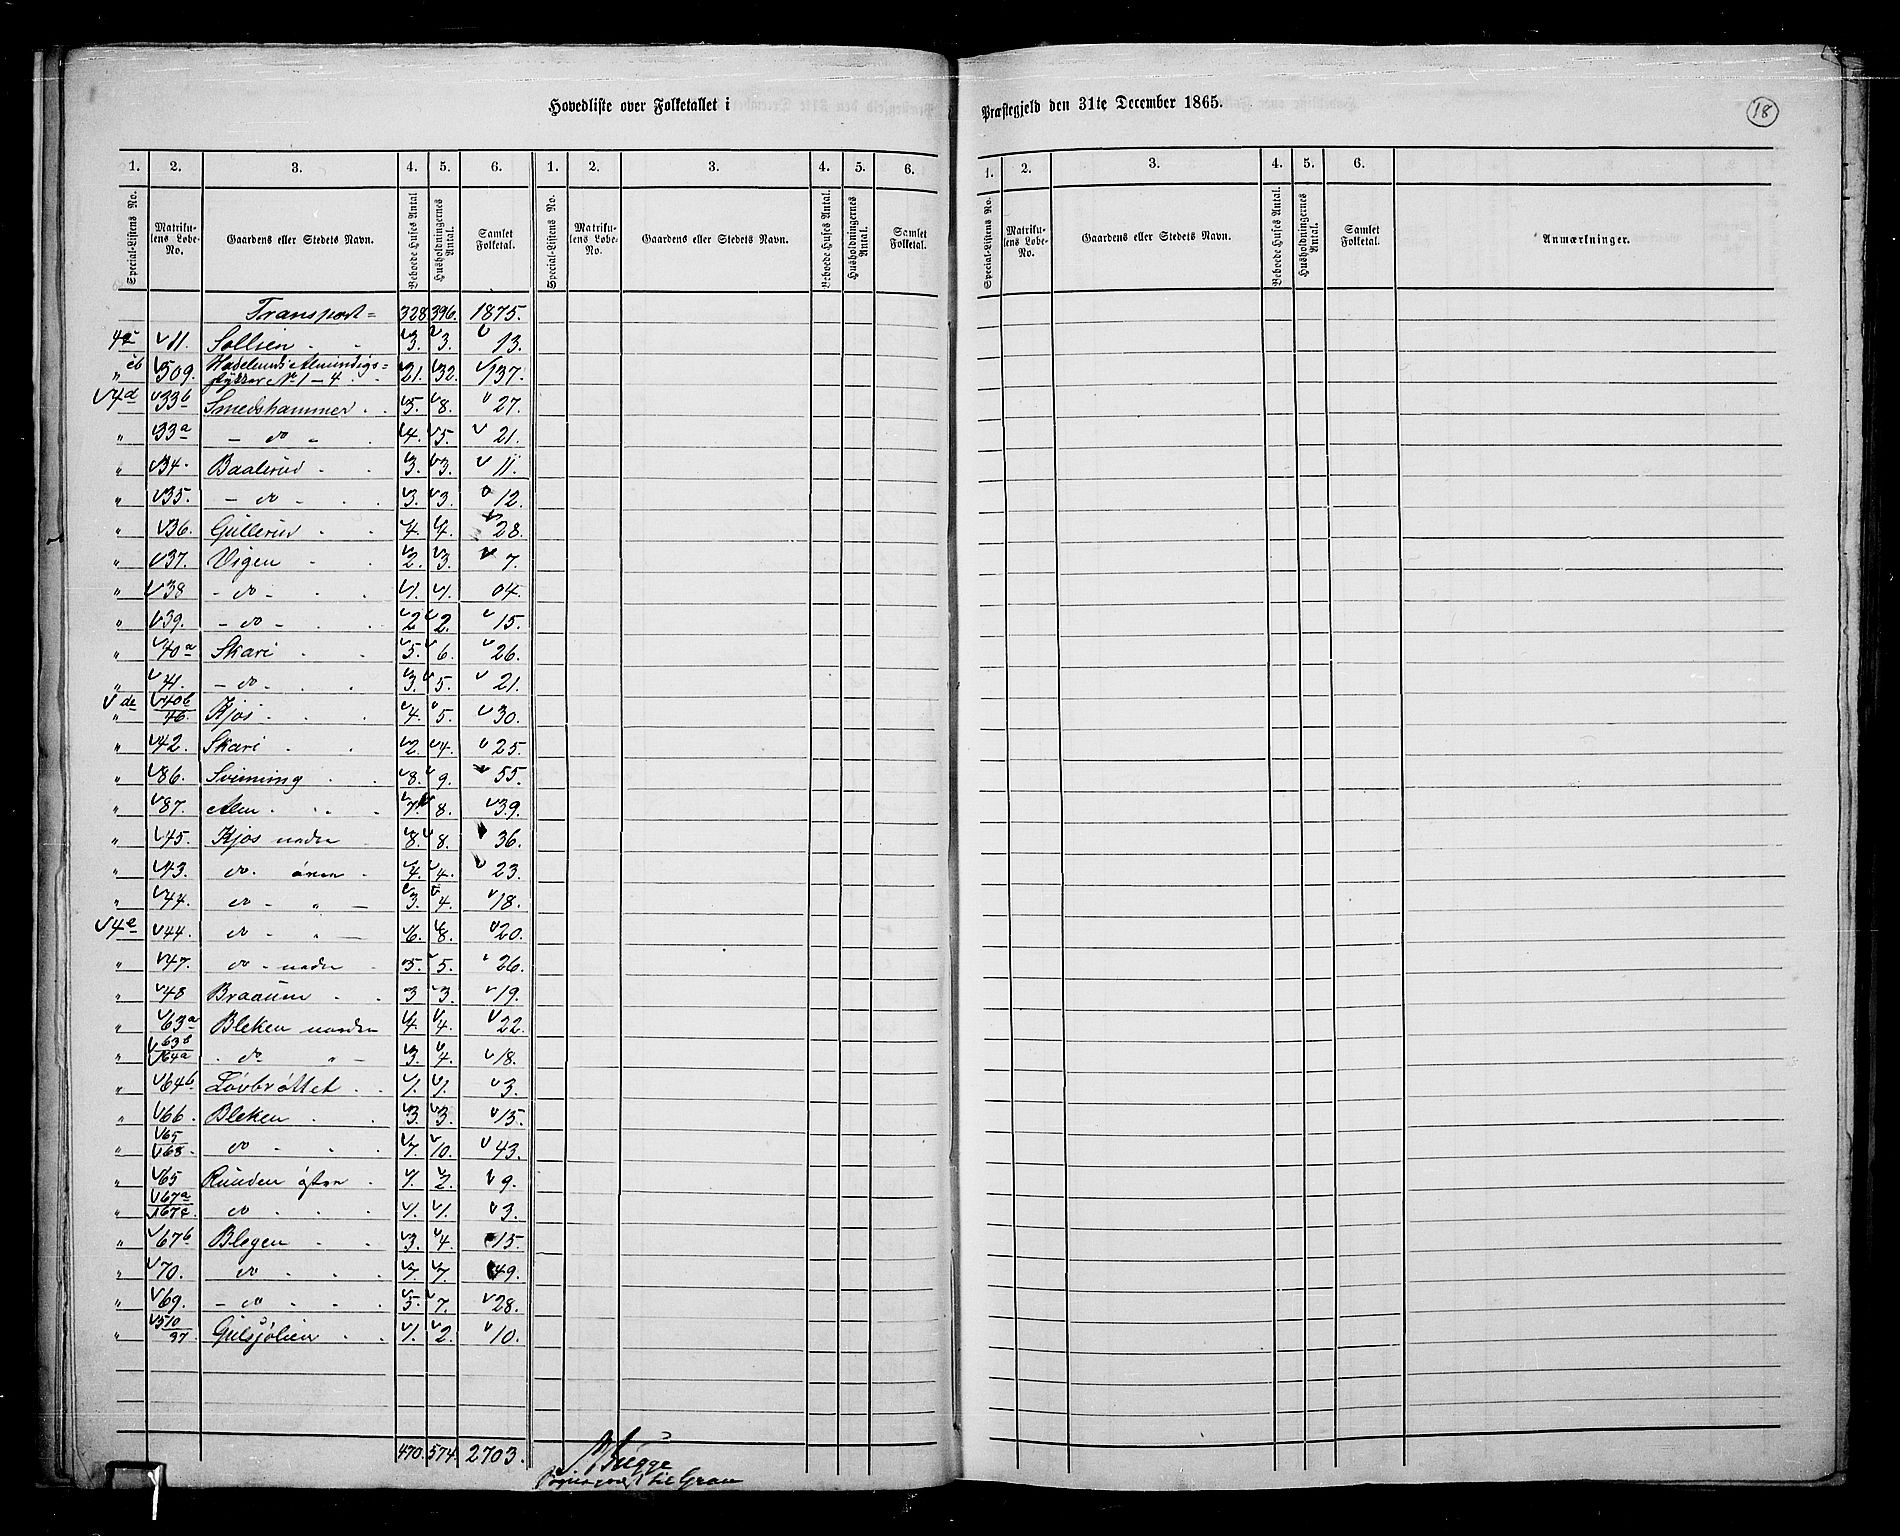 Hovedliste over Folketallet i Præstegjeld den 31te December 1865.
18
1. 2. 3. 4. 5. 6. 1. 2. 3. 4. 5. 6. 1. 2. 3. 4. 5. 6.
Special-Listens No. Matrikulens Løbe-No. Gaardens eller Stedets Navn. Beboede Huses Antal Husholdningernes Antal. Samlet Folketal. Special-Listens No. Matrikulens Løbe-No. Gaardens eller Stedets Navn. Beboede Huses Antal. Husholdningernes Antal. Samlet Folketal. Special-Listens No. Matrikulens Løbe-No. Gaardens eller Stedets Navn. Beboede Huses Antal. Husholdningernes Antal. Samlet Folketal. Anmærkninger.
Transport= 328 396. 1875.
4c 11. Sollien 3. 3. 13.
" 509. Hadelands Almindigs= stykker No 1-4 21. 32. 137.
4d 33b Smedshammer 5. 8. 27.
" 33a - do - 4. 5. 21.
" 34. Baalerud 3. 3. 11.
" 35. - do - 3. 3. 12.
" 36. Gullerud 4. 4. 28.
" 37. Vigen 2. 3. 7.
" 38 - do - 1. 1. 04.
" 39. - do - 2 2. 15.
" 40a Skari 5. 6. 26.
" 41. - do - 3. 5. 21.
de " 40b/46 Kjos 4. 5. 30.
" 42. Skari 2. 4. 25.
" 86. Svinning 8. 9. 55.
" 87. Alm 7. 8. 39.
" 45. Kjos nedre 8. 8. 36.
" 43. do. øvre 4. 4. 23.
" 44. do - " - 3. 4. 18.
4e 44. do - " - 6. 8. 20.
" 47. do - nedre 5. 5. 26.
" 48 Braaum 3 3. 19.
" 63a Bleken nordre 4. 4. 22.
" 63b/64a do " - 3. 4. 18.
" 64b Løvbrøttet 1. 1. 3.
" 66. Bleken 3. 3. 15.
" 65/68 do 7. 10. 43.
" 65 Runden østre 1. 2. 9.
" 67a/67c do 1. 1. 3.
" 67b Blegen 3. 4. 15.
" 70. do 7. 7. 49.
" 69. - do 5. 7. 28.
" 510/97 Gulsjølien 1. 2. 10.
470. 574. 2703.
Bugge
Sognepræst til Gran